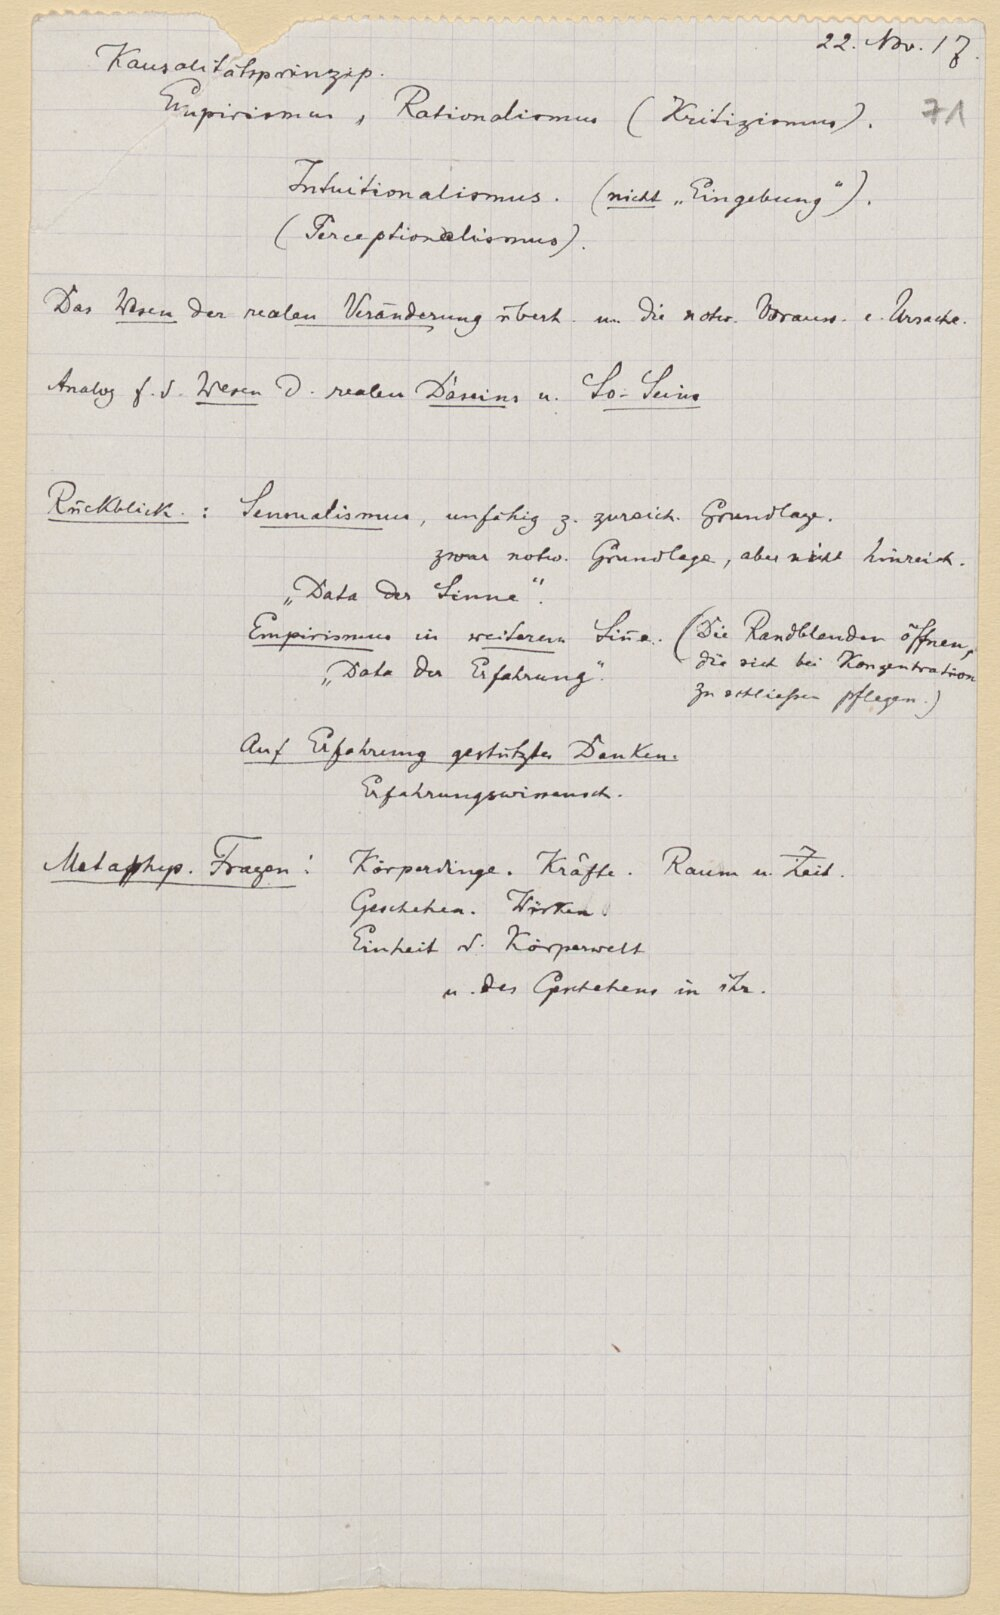 22. Nov. 17.
Kausalitätsprinzip.
71
Empirismus, Rationalismus (Kritizismus).
Intuitionalismus. (nicht „Eingebung“).
(Perceptionalismus).
Das Wesen der realen Veränderung überh. u. die notw. Vorauss. e. Ursache.
Analog f. d. Wesen d. realen Daseins u. So-Seins
Rückblick.: Sensualismus, unfähig z. zureich. Grundlage.
zwar notw. Grundlage, aber nicht hinreich.
„Data der Sinne“.
Empirismus in weiterem Sin̄e. (Die Randblenden öffnen,
die sich bei Konzentration
„Data der Erfahrung“.
zu schließen pflegen.)
Auf Erfahrung gestütztes Denken.
Erfahrungswissensch.
Metaphys. Fragen: Körperdinge. Kräfte. Raum u. Zeit.
Geschehen. Wirken.
Einheit d. Körperwelt
u. des Geschehens in ihr.